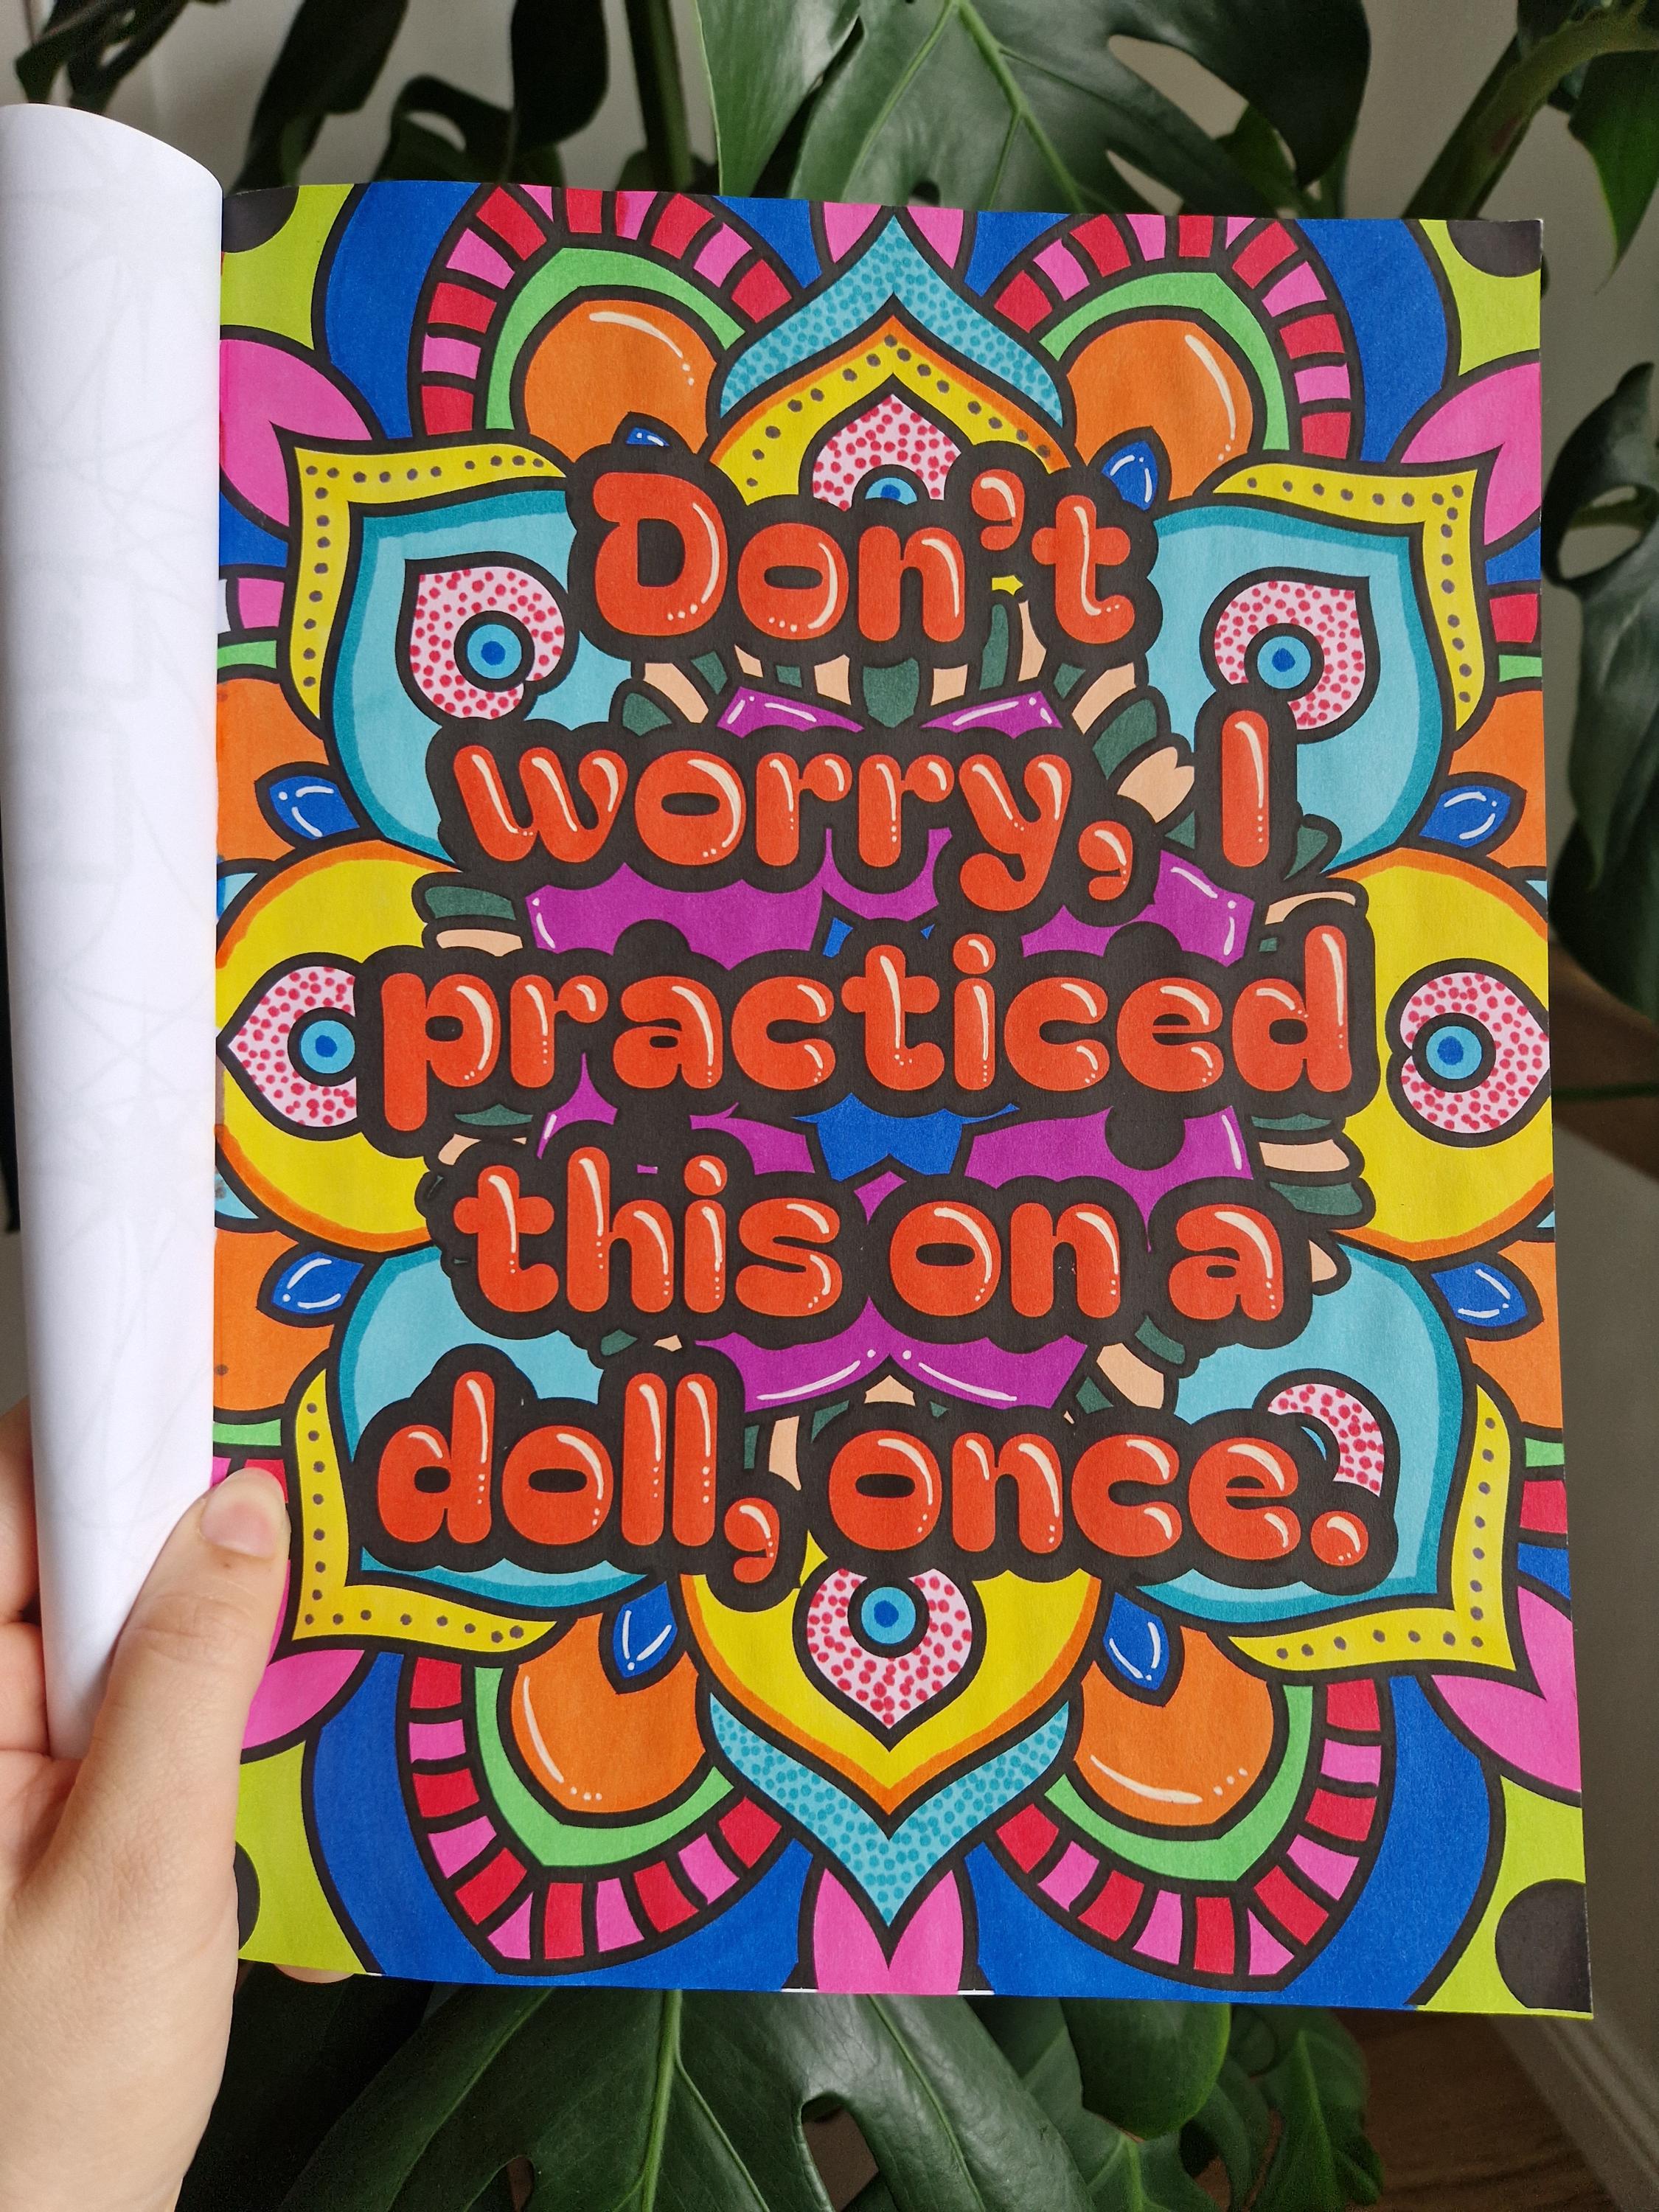 Don't
worry, I
practiced
this on a
doll, once.